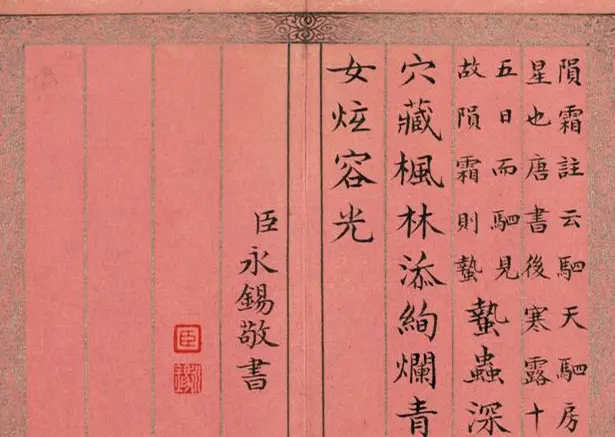 隕霜註云駟天駟房
星也唐書後寒露十
五日而駟見
故隕霜則蟄
蟄蟲深
穴藏楓林添絢爛青
女炫容光
臣永錫敬書
臣